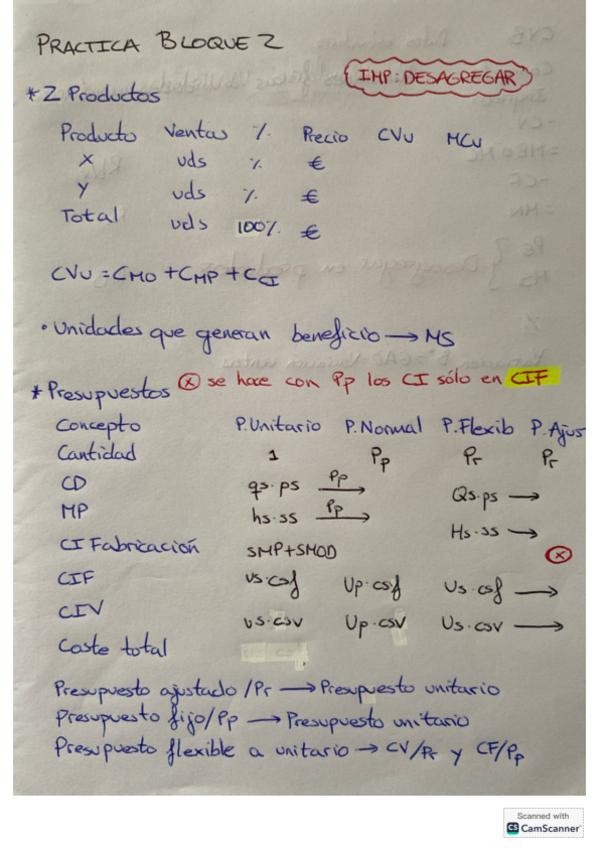 PRACTICA BLOQUE 2
IMP: DESAGREGAR
* 2 Productos
Producto Ventas % Precio CVu MCu
X uds % €
Y uds % €
Total uds 100% €
CVu = CMO + CMP + CCI
• Unidades que generan beneficio → MS
* Presupuestos ⓧ se hace con Pp los CI sólo en CIF
Concepto P.Unitario P.Normal P.Flexib P.Ajus
Cantidad 1 Pp Pr Pr
CD qs·ps Pp→ Qs·ps →
MP hs·ss Pp→ Hs·ss →
CI Fabricación SMP+SMOD ⓧ
CIF us·csf Up·csf Us·csf →
CIV us·csv Up·csv Us·csv →
Coste total
Presupuesto ajustado/Pr → Presupuesto unitario
Presupuesto fijo/Pp → Presupuesto unitario
Presupuesto flexible a unitario → CV/Pr y CF/Pp
Scanned with
CS CamScanner